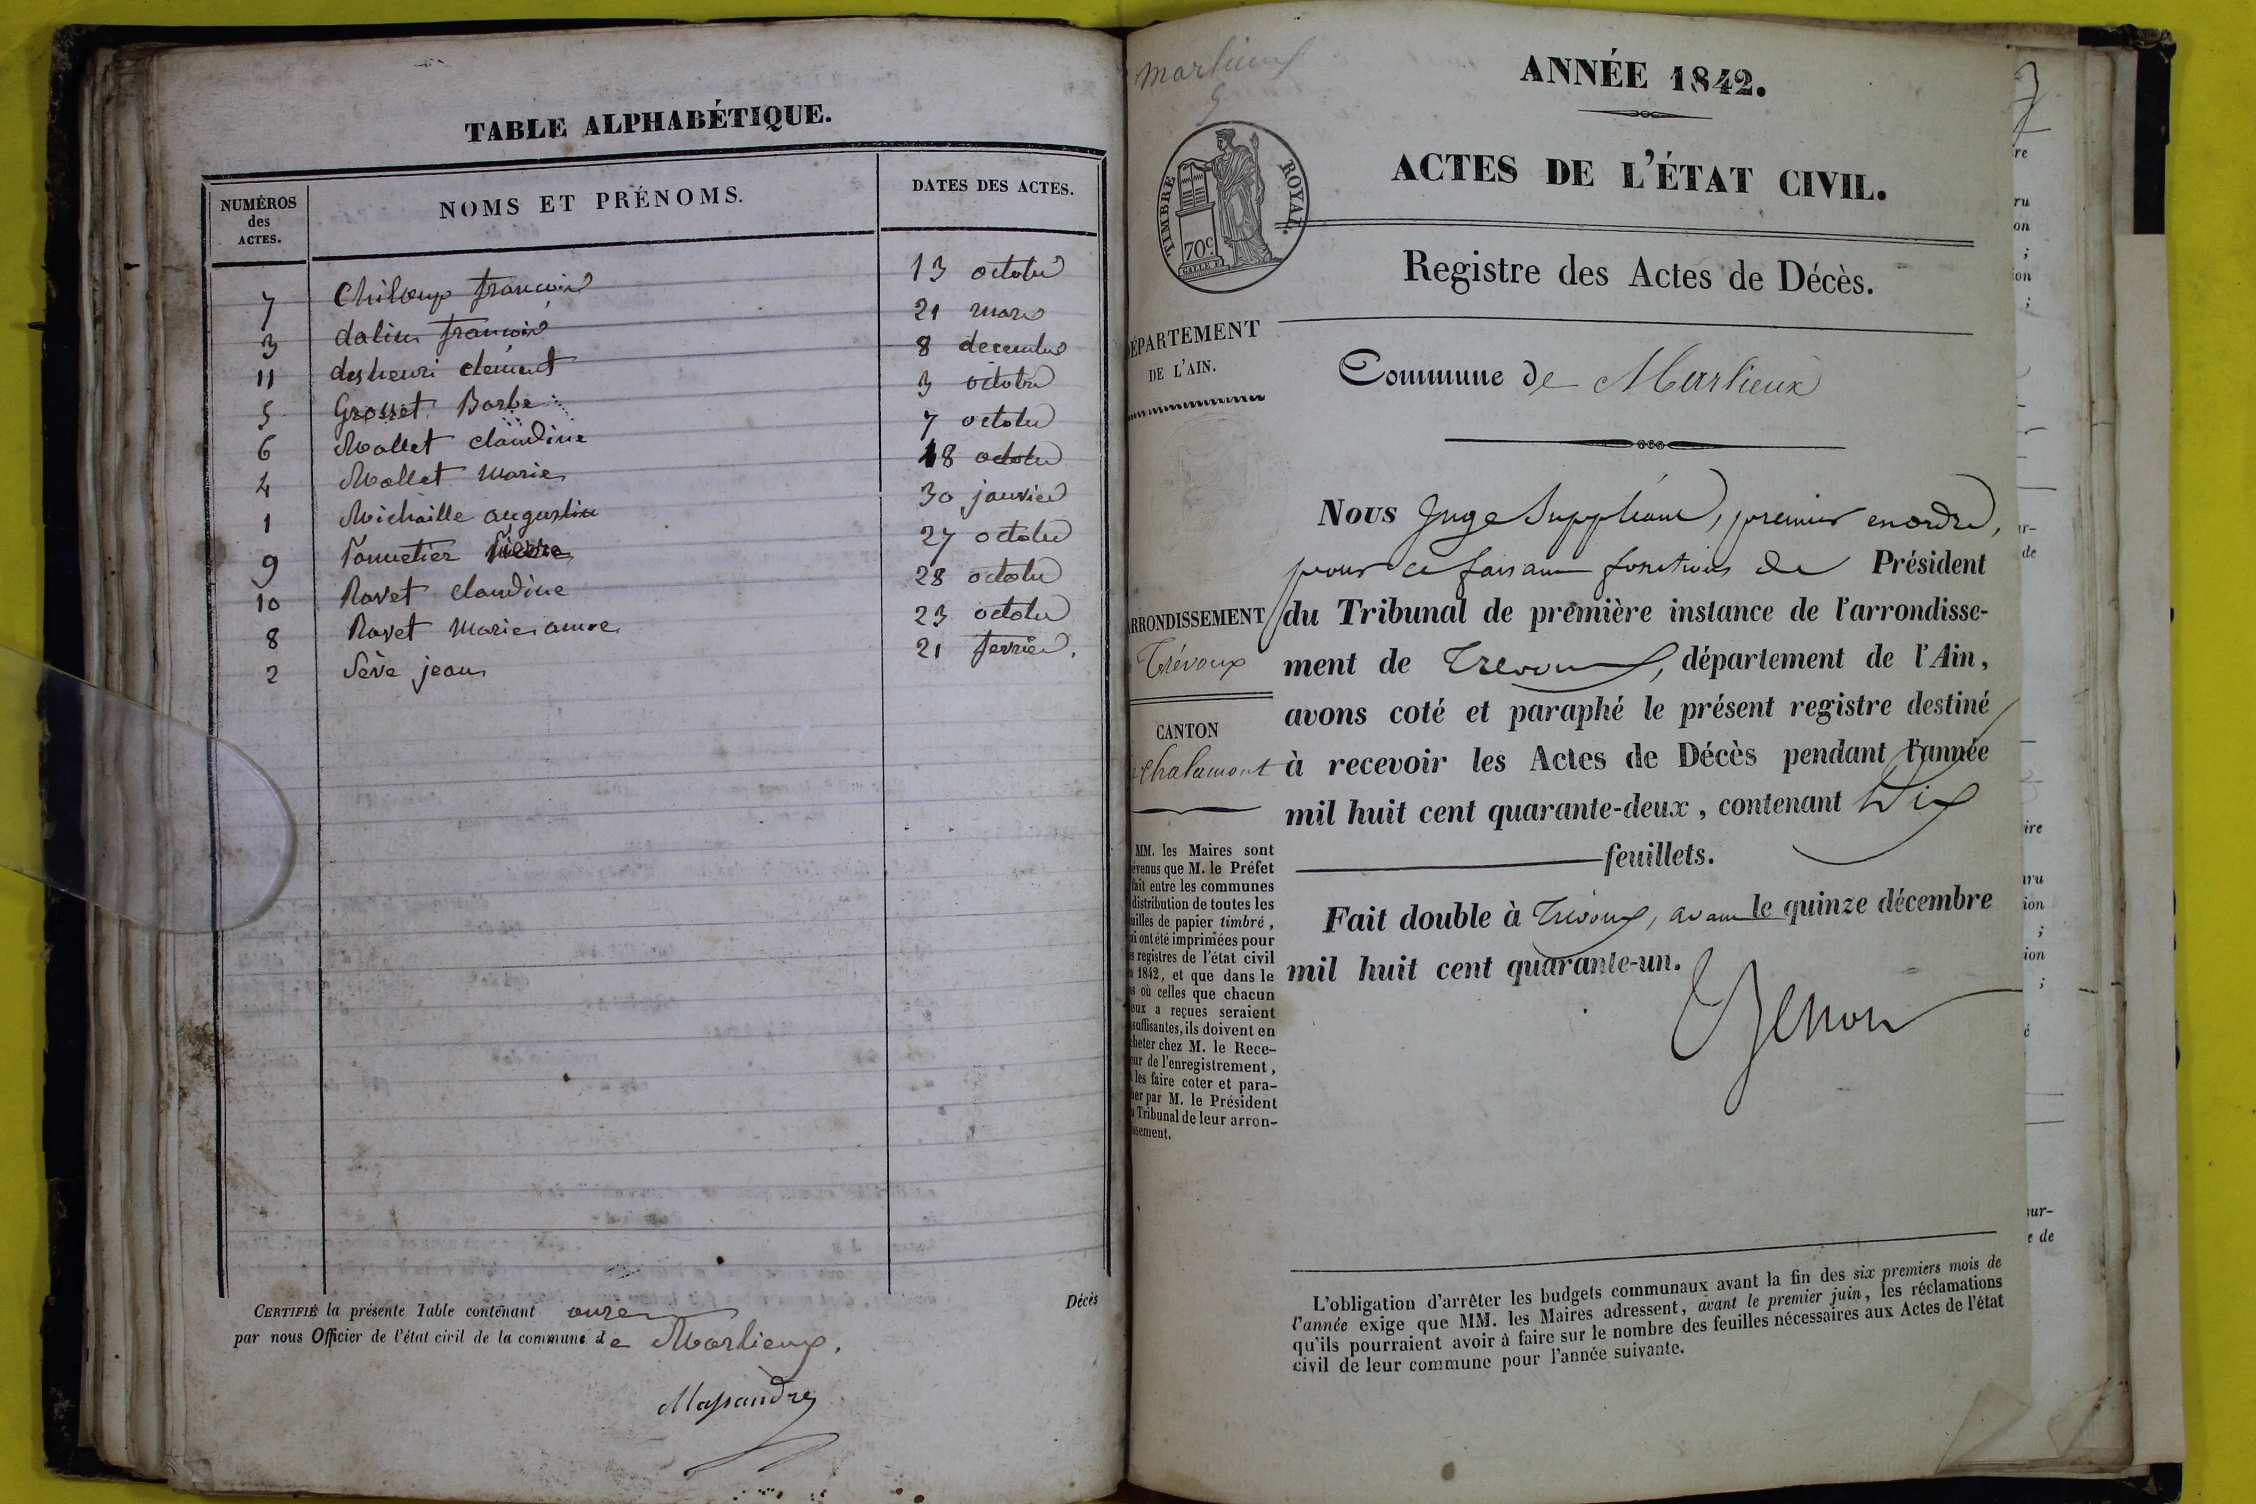 TABLE ALPHABÉTIQUE.
NUMÉROS des ACTES. NOMS ET PRÉNOMS. DATES DES ACTES.
7 Chiloup françois 13 octobre
3 dalin françois 21 mars
11 deshenri clément 8 decembre
5 Grosset Barbe 3 octobre
6 Mallet claudine 7 octobre
4 Mallet Marie 18 octobre
1 Michaille augustin 30 janvier
9 Pannetier Pierre 27 octobre
10 Ravet claudine 28 octobre
8 Ravet marie anne 23 octobre
2 Sève jean 21 fevrier.
CERTIFIÉ la présente Table contenant onze Décès
par nous Officier de l'état civil de la commune de Marlieux.
Massandre
Marlieux
5
ANNÉE 1842.
TIMBRE ROYAL.
70c
ACTES DE L'ÉTAT CIVIL.
Registre des Actes de Décès.
DÉPARTEMENT
DE L'AIN.
Commune de Marlieux
Nous Juge Suppléant, premier en ordre,
pour ce faisant fonctions de Président
ARRONDISSEMENT
Trévoux
du Tribunal de première instance de l'arrondisse-
ment de Trevoux, département de l'Ain,
avons coté et paraphé le présent registre destiné
CANTON
Chalamont
à recevoir les Actes de Décès pendant l'année
mil huit cent quarante-deux, contenant Dix
feuillets.
Fait double à Trévoux, avant le quinze décembre
mil huit cent quarante-un.
MM. les Maires sont
évenus que M. le Préfet
fait entre les communes
distribution de toutes les
uilles de papier timbré,
ui ont été imprimées pour
s registres de l'état civil
1842, et que dans le
s où celles que chacun
eux a reçues seraient
suffisantes, ils doivent en
cheter chez M. le Rece-
eur de l'enregistrement,
les faire coter et para-
her par M. le Président
Tribunal de leur arron-
issement.
L'obligation d'arrêter les budgets communaux avant la fin des six premiers mois de
l'année exige que MM. les Maires adressent, avant le premier juin, les réclamations
qu'ils pourraient avoir à faire sur le nombre des feuilles nécessaires aux Actes de l'état
civil de leur commune pour l'année suivante.